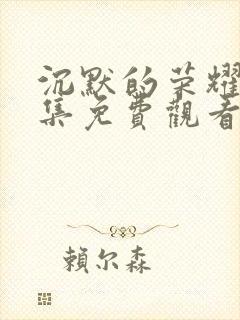 沉默的荣耀
集免費觀看
賴尔森